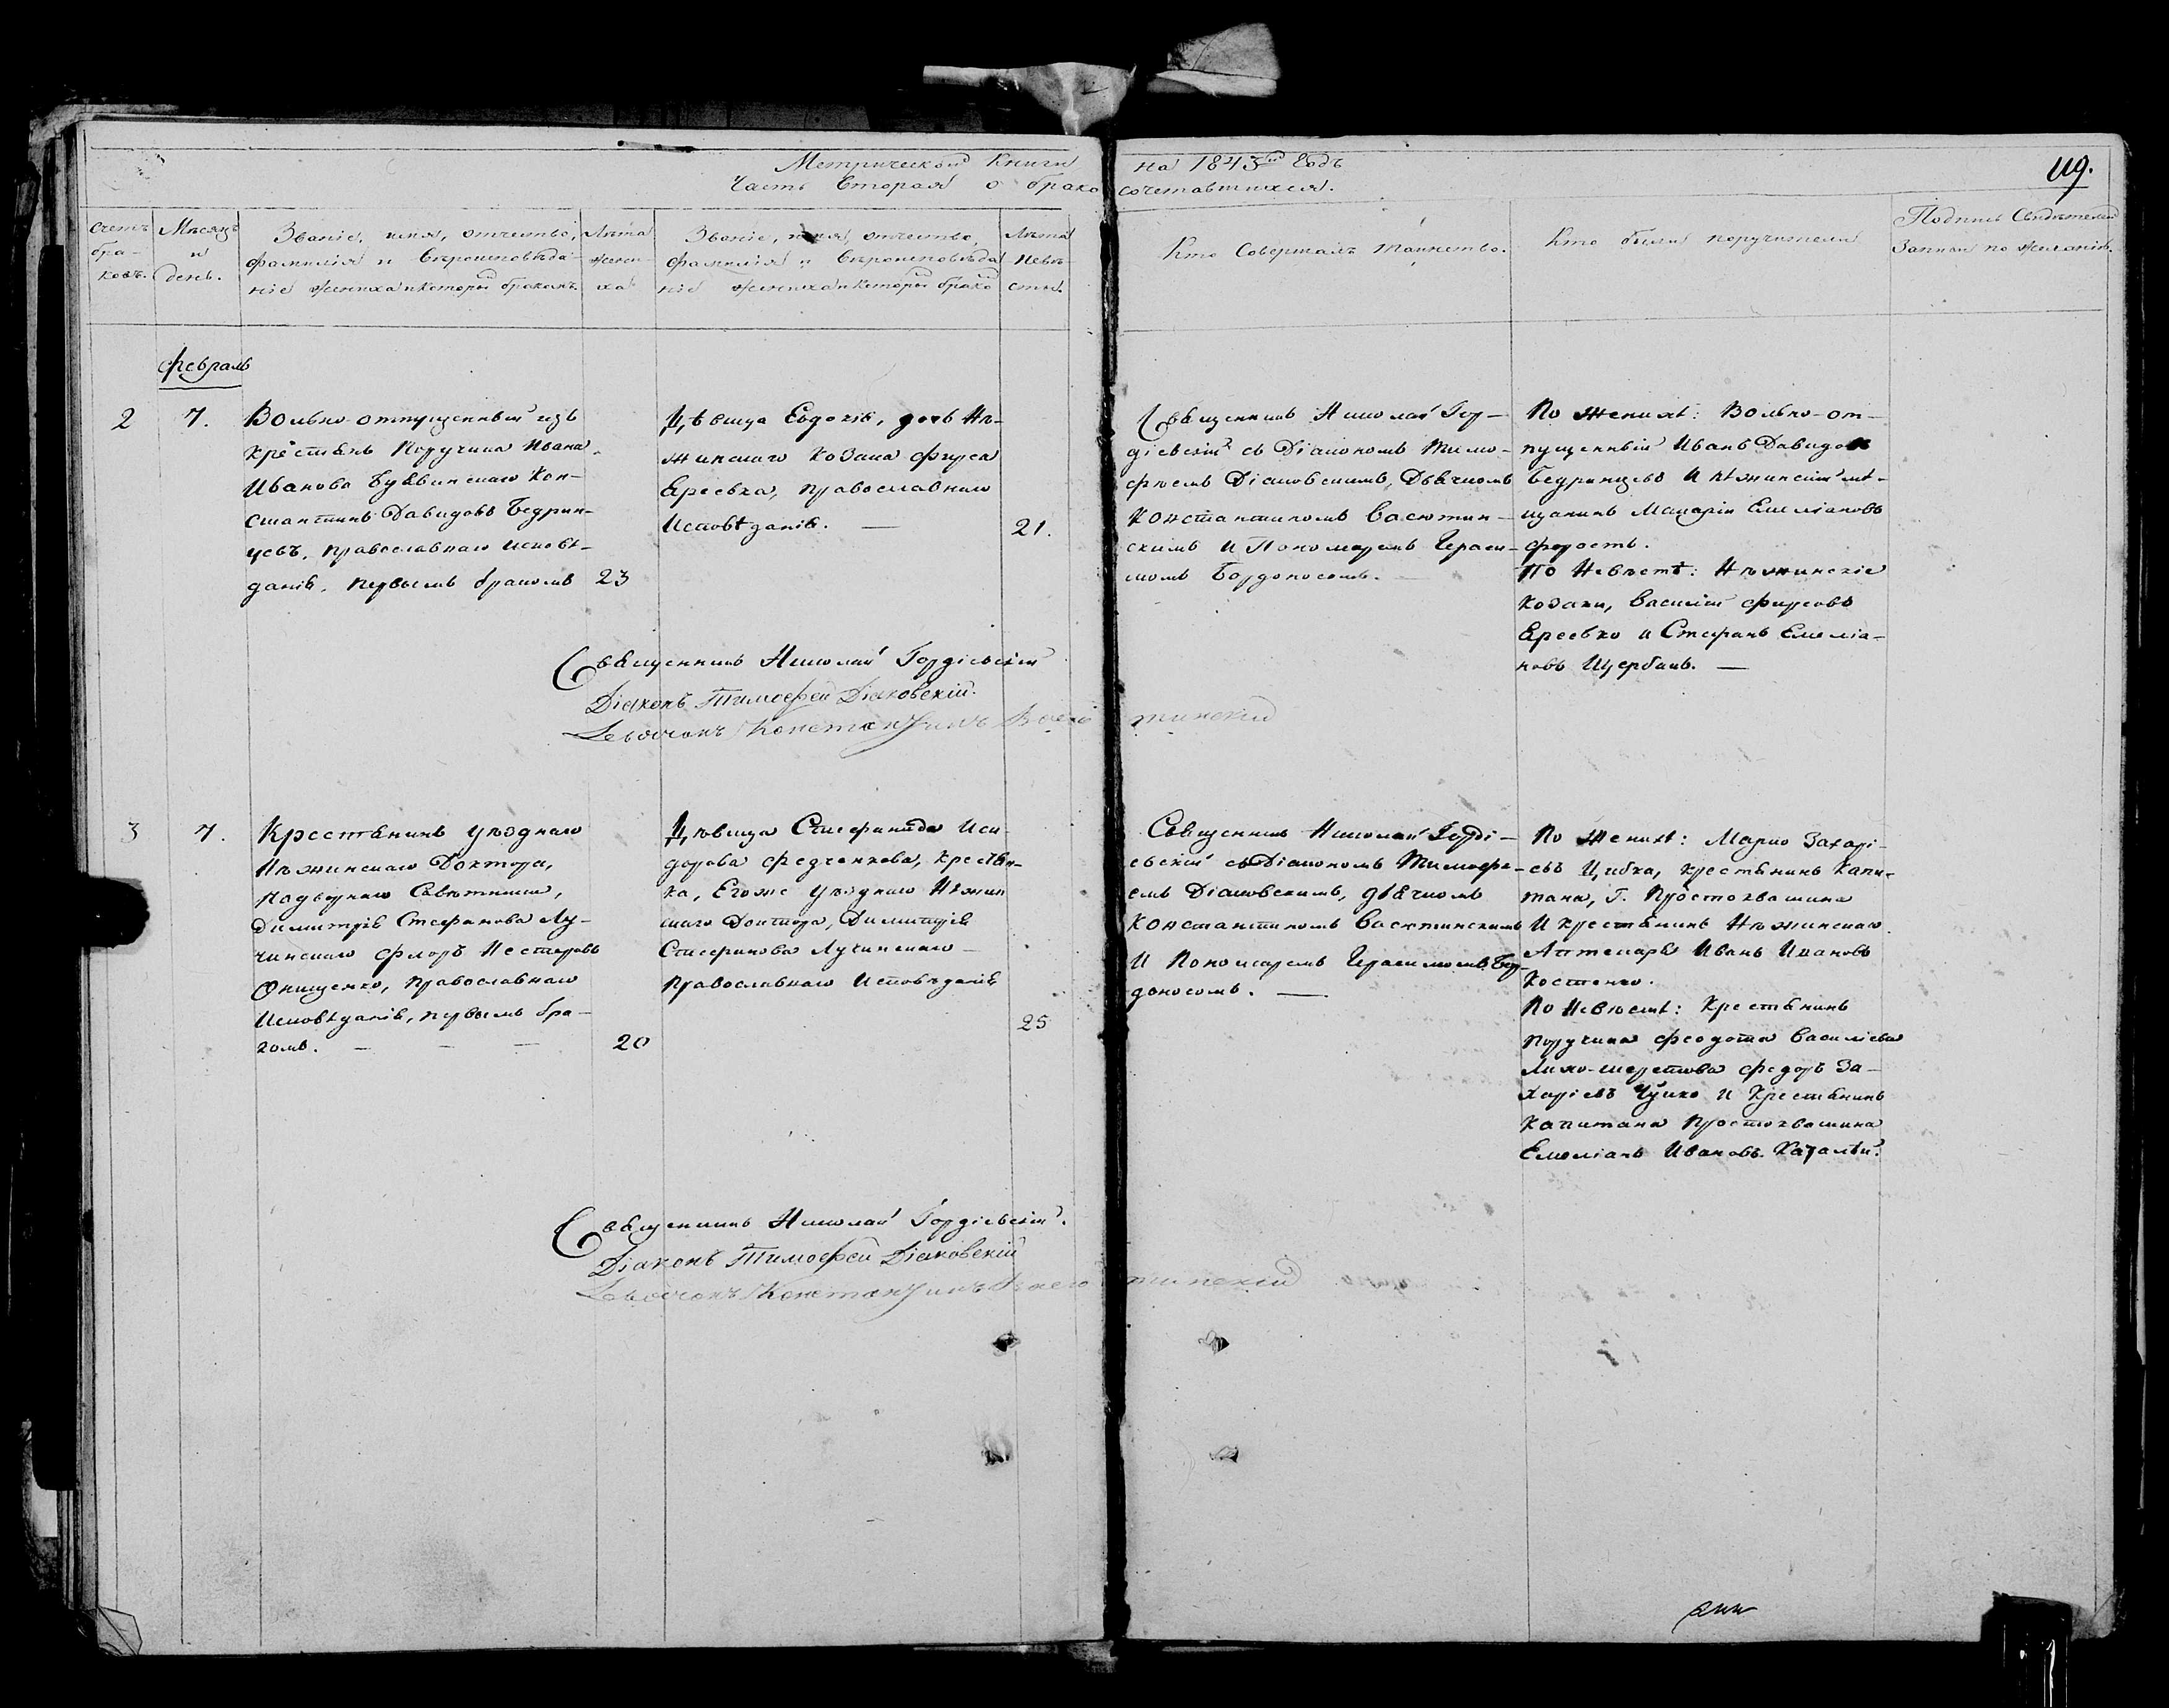 Метрической Книги на 1843й Годъ
119.
Часть Вторая о бракосочетавшихся.
Счетъ браковъ.
Мѣсяцъ и день.
Званіе, имя, отчество,
фамилія и вѣроисповѣда-
ніе жениха и которы бракомъ
Лѣта жени-
ха
Званіе, имя, отчество,
фамилія и вѣроисповѣда
ніе жениха и которы брако
Лѣта невѣ-
сты.
Кто Совершалъ таинство.
Кто были поручители
Подпись Свидѣтелей
Записи по желанію.
Февраль
2
7.
Вольно-отпущенный изъ
крестьянъ Поручика Ивана
Иванова Буквинскаго Кон-
стантинъ Давидовъ Бедрин-
цевъ, православнаго исповѣ-
данія, первымъ бракомъ
23
Дѣвица Евдокія, дочь Нѣ-
жинскаго Козака Фирса
Ересвка, православнаго
Исповѣданія. —
21.
Священникъ Николай Гор-
діевскій съ Діакономъ Тимо-
феемъ Діаковскимъ, Дьячкомъ
Константиномъ Васютин-
скимъ и Пономаремъ Гераси-
момъ Бордоносомъ. —
По Женихѣ: Вольно-от-
пущенный Иванъ Давидовъ
Бедринцевъ И нѣжинскій мѣ-
щанинъ Макарій Емеліановъ
Форостъ.
По Невѣстѣ: Нѣжинскіе
Козаки, Василій Фирсовъ
Ересвко и Стефанъ Емеліа-
новъ Щербакъ. —
Священникъ Николай Гордіевскій
Діаконъ Тимофей Діаковскій.
Константинъ Васютинскій
3
7.
Крестьянинъ уѣзднаго
Нѣжинскаго Доктора,
надворнаго Совѣтника,
Димитрія Стефанова Лу-
чинскаго Флоръ Нестеровъ
Онищенко, православнаго
Исповѣданія, первымъ бра-
комъ. — — —
20
Дѣвица Стефанида Иси-
дорова Федченкова, крестьян-
ка, Егоже уѣзднаго Нѣжин
скаго Доктора, Димитрія
Стефанова Лучинскаго —
Православнаго Исповѣданія
25
Священникъ Николай Горді-
евскій съ Діакономъ Тимофе-
емъ Діаковскимъ, дьячкомъ
Константиномъ Васютинскимъ
И Пономаремъ Герасимомъ Бор-
доносомъ. —
По Женихѣ: Марко Захарі-
евъ Цибка, крестьянинъ Капи-
тана, Г. Простоквашина
И крестьянинъ Нѣжинскаго
Аптекаря Иванъ Ивановъ
Костенко.
По Невѣстѣ: Крестьянинъ
Поручика Феодота Василіева
Лихо-шерстова Федоръ За-
харіевъ Чуйко и Крестьянинъ
Капитана Простоквашина
Емеліанъ Ивановъ
Священникъ Николай Гордіевскій.
Діаконъ Тимофей Діаковскій
Константинъ Васютинскій